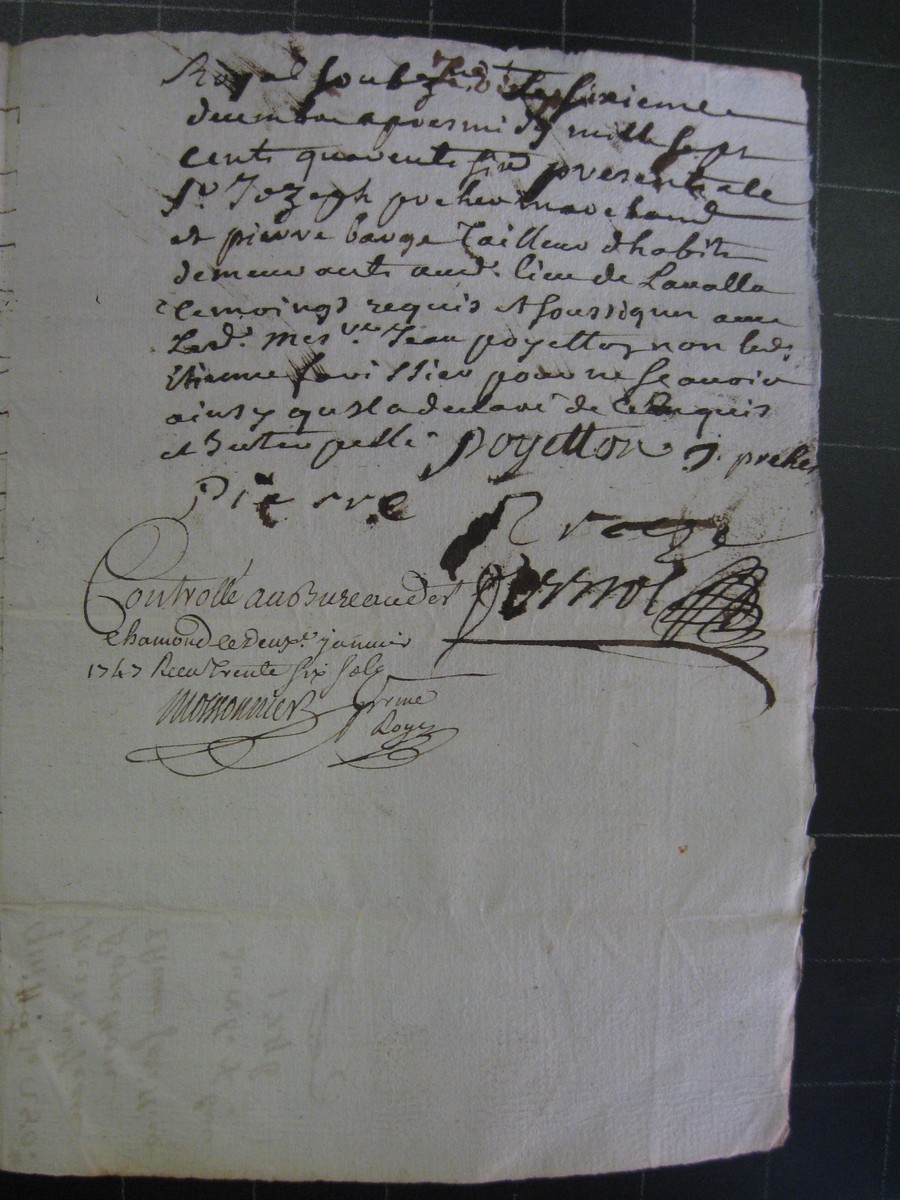 Royal soubz le sixieme
decembre apres midy mille sept
cents quarente six presents le
Sr Jozeph preher marchand
et pierre barge Tailleur dhabits
demeurants aud. lieu de Lavalla
temoings requis et soussignes avec
Led. Mes.re Jean poyetton non led.
Etienne pour ne scavoir
ainsy qu'il a declaré de ce Requis
et Interpellé Poyetton J. preher
Pierre
Controllé au Bureau de st
chamond le deux.e janvier
1747 Receu Trente six sols